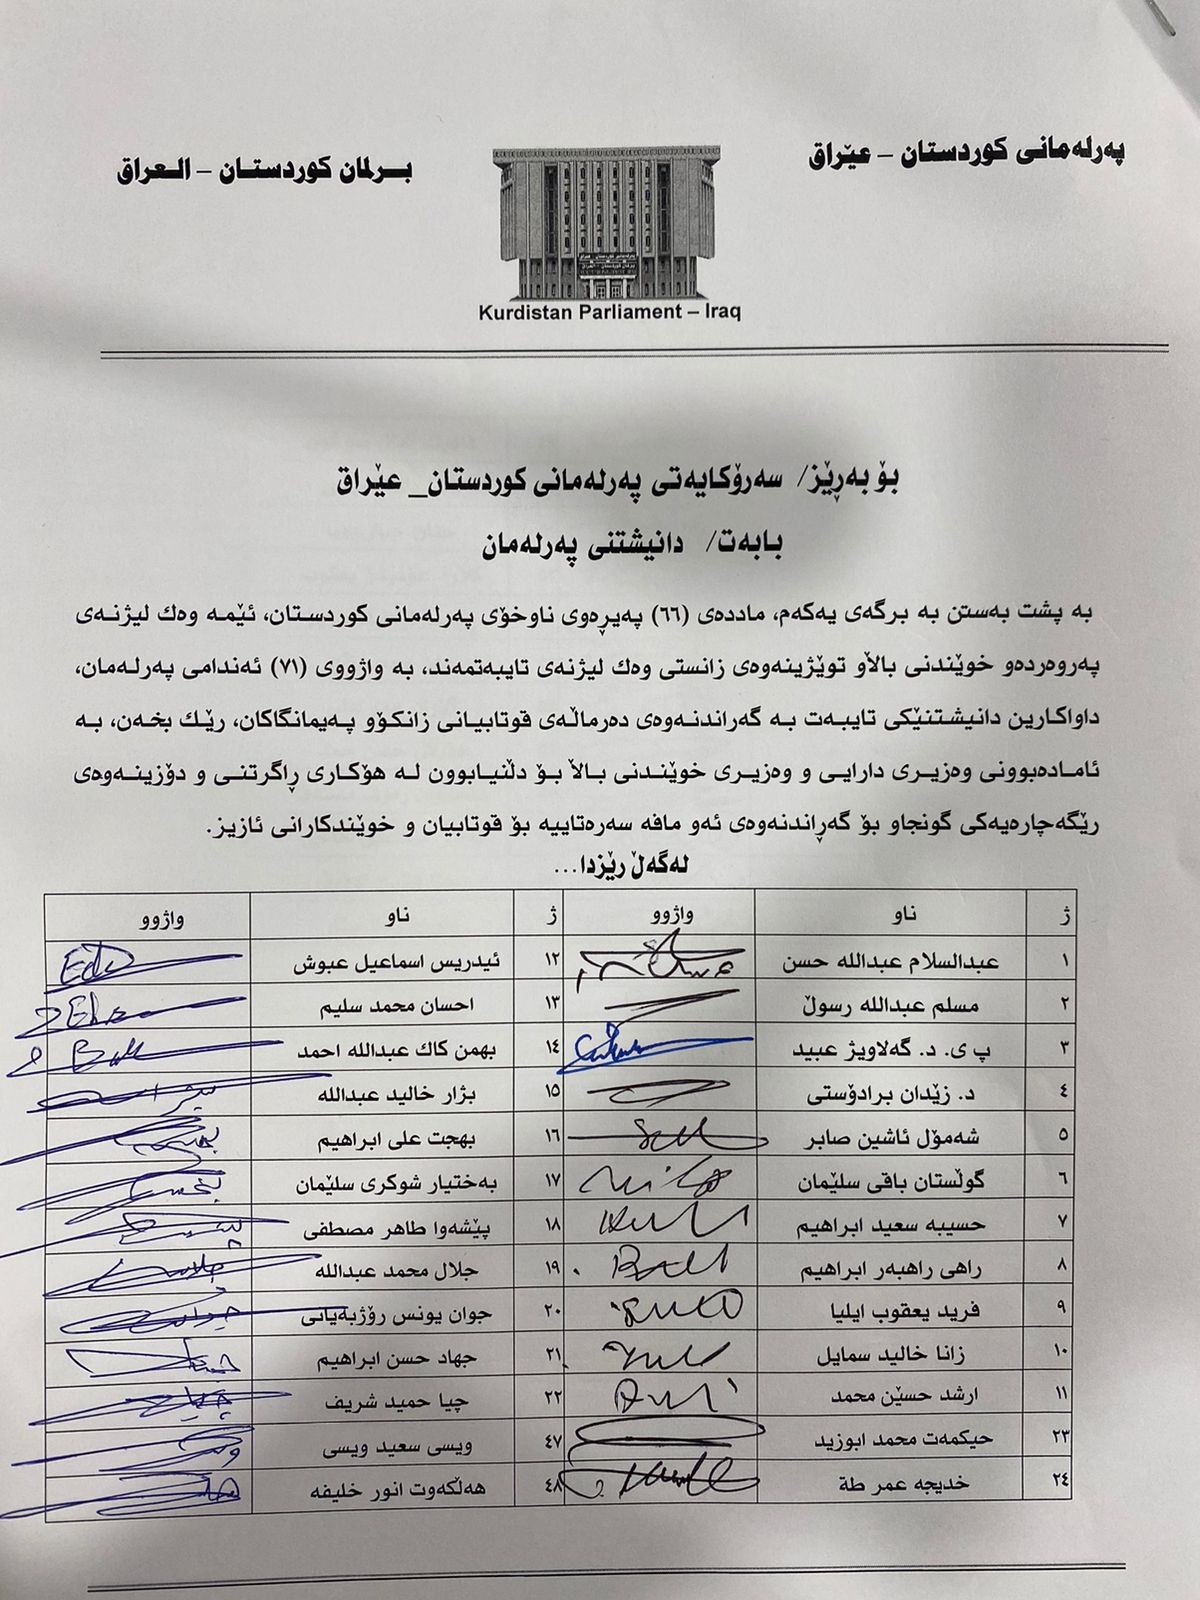 پەرلەمانی کوردستان – عێراق
بـرلمان كوردسـتـان – الـعـراق
پەرلەمانی کوردستان – عێراق
برلمان كوردستان – العراق
Kurdistan Parliament – Iraq
بۆ بەڕێز/ سەرۆکایەتی پەرلەمانی کوردستان_ عێراق
بـابـەت/ دانیشتنی پەرلەمان
بە پشت بەستن بە برگەی یەکەم، ماددەی (٦٦) پەیڕەوی ناوخۆی پەرلەمانی کوردستان، ئێمە وەك لیژنەی
پەروەردەو خوێندنی بالآو توێژینەوەی زانستی وەك لیژنەی تایبەتمەند، بە واژووی (٧١) ئەندامی پەرلەمان،
داواکارین دانیشتنێکی تایبەت بە گەراندنەوەی دەرماڵەی قوتابیانی زانکۆو پەیمانگاکان، رێك بخەن، بە
ئامادەبوونی وەزیری دارایی و وەزیری خوێندنی بالآ بۆ دڵنیابوون لە هۆکاری ڕاگرتنی و دۆزینەوەی
رێگەچارەیەکی گونجاو بۆ گەڕاندنەوەی ئەو مافە سەرەتاییە بۆ قوتابیان و خوێندکارانی ئازیز.
لەگەڵ رێزدا...
ژ ناو واژوو ژ ناو واژوو
١ عبدالسلام عبدالله حسن ١٢ ئیدریس اسماعیل عبوش
٢ مسلم عبدالله رسوڵ ١٣ احسان محمد سلیم
٣ پ ی. د. گەلاوێژ عبید ١٤ بهمن كاك عبدالله احمد
٤ د. زێدان برادۆستی ١٥ بژار خالید عبدالله
٥ شەمۆل ئاشین صابر ١٦ بهجت علی ابراهیم
٦ گوڵستان باقی سلێمان ١٧ بەختیار شوکری سلێمان
٧ حسیبە سعید ابراهیم ١٨ پێشەوا طاهر مصطفی
٨ راهی راهبەر ابراهیم ١٩ جلال محمد عبدالله
٩ فرید یعقوب ایلیا ٢٠ جوان یونس رۆژبەیانی
١٠ زانا خالید سمایل ٢١ جهاد حسن ابراهیم
١١ ارشد حسێن محمد ٢٢ چیا حمید شریف
٢٣ حیکمەت محمد ابوزید ٤٧ ویسی سعید ویسی
٢٤ خدیجە عمر طە ٤٨ هەڵکەوت انور خلیفە